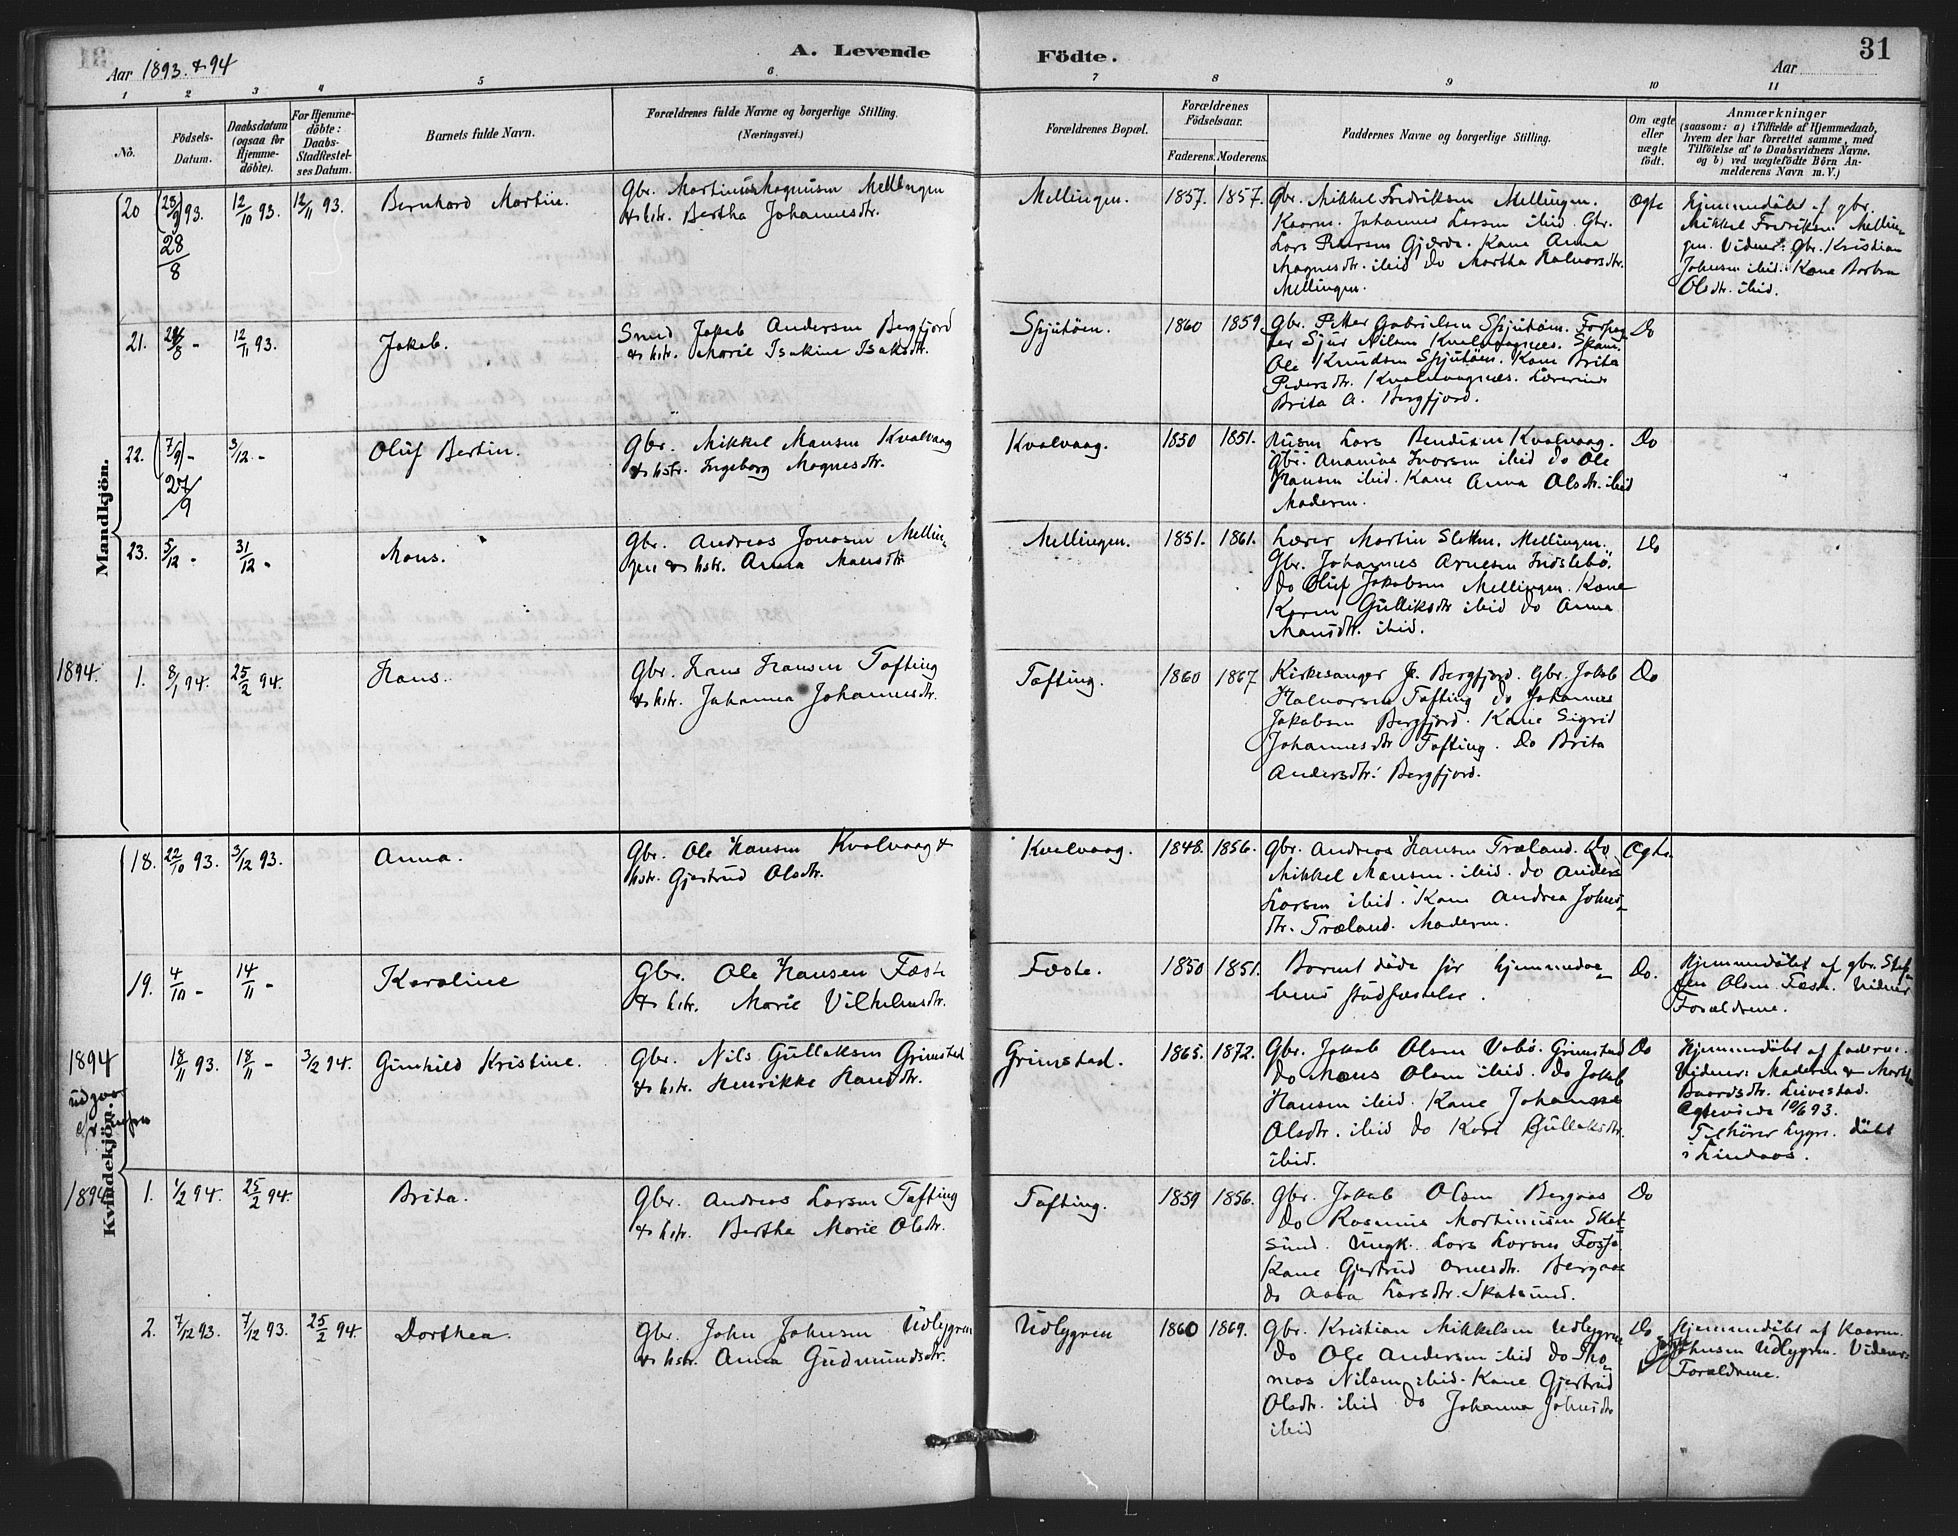 A. Levende Födte. 31
Aar 1893 & 94
Aar
1 2 3 4 5 6 7 8 9 10 11
No.
Födsels-
Datum.
Daabsdatum
(ogsaa for
Hjemme-
döbte).
For Hjemme-
döbte:
Daabs-
Stadfæstel-
ses Datum.
Barnets fulde Navn.
Forældrenes fulde Navne og borgerlige Stilling.
(Næringsvei.)
Forældrenes Bopæl.
Forældrenes
Födselsaar.
Faderens. Moderens.
Faddernes Navne og borgerlige Stilling.
Om ægte
eller
uægte
födt.
Anmærkninger
(saasom: a) i Tilfælde af Hjemmedaab,
hvem der har forrettet samme, med
Tilföielse af to Daabsvidners Navne,
og b) ved uægtefödte Börn An-
melderens Navn m. V.)
Mandkjön.
20 (28/9) 93. 28/8 12/10 93. 12/11 93. Bernhard Martin.
Gbr. Martinus Magnusen Mellingen
& hstr. Bertha Johannesdtr.
Mellingen. 1857. 1857.
Gbr. Mikkel Fredriksen Mellingen.
Kaarm. Johannes Larsen ibid. Gbr.
Lars Pedersen Gjærde. Kone Anna
Magnesdtr. ibid Do Martha Halvorsdtr.
Mellingen.
Ægte
Hjemmedöbt af gbr.
Mikkel Fredriksen Mellin-
gen. Vidner: Gbr. Kristian
Johnsen ibid. Kone Barbra
Olsdtr. ibid.
21. 12/11 93. Jakob.
Smed Jakob Andersen Bergfjord
& hstr. Marie Isakine Isaksdtr.
Spjutöen. 1860 1859.
Gbr. Petter Gabrielsen Spjutöen.
Sjur Nilsen Kvalvaagnes.
Ole Knudsen Spjutöen. Kone Brita
Pedersdtr. Kvalvaagnes. Lærerinde
Brita A. Bergfjord.
Do
22. (7/9) - 27/9 3/12 - Oluf Bertin.
Gbr. Mikkel Mansen Kvalvaag
& hstr. Ingeborg Magnesdtr.
Kvalvaag. 1850 1851.
Husm Lars Bendixen Kvalvaag.
Gbr. Ananias Ivarsen ibid Do Ole
Hansen ibid. Kone Anna Olsdtr. ibid
Moderen.
Do
23. 5/12 - 31/12 - Mons.
Gbr. Andreas Jonasen Mellin-
gen & hstr. Anna Mansdtr
Mellingen. 1851. 1861.
Lærer Martin Sletten. Mellingen.
Gbr. Johannes Arnesen Indslebö.
Do Oluf Jakobsen Mellingen. Kone
Karen Gulliksdtr ibid Do Anna
Mansdtr. ibid.
Do
1894. 1. 8/1 94. 25/2 94. Hans.
Gbr. Hans Hansen Tofting
& hstr. Johanna Johannesdtr.
Tofting. 1860 1867
Kirkesanger J. Bergfjord. Gbr. Jakob
Halvorsen Tofting Do Johannes
Jakobsen Bergfjord. Kone Sigrid
Johannesdtr Tofting. Do Brita
Andersdtr. Bergfjord.
Do
Kvindekjön.
18. 22/10 93. 3/12 93. Anna.
Gbr. Ole Hansen Kvalvaag &
hstr. Gjertrud Olsdtr.
Kvalvaag. 1848. 1856.
Gbr. Andreas Hansen Træland. Do
Mikkel Mansen ibid. Do Anders
Larsen ibid. Kone Andrea Johns-
dtr. Træland. Moderen.
Ægte.
19. 4/10 - 14/11 - Karoline
Gbr. Ole Hansen Fæste
& hstr. Marie Vilhelmsdtr.
Fæste. 1850 1851.
Barnet döde för hjemmedaa-
bens stadfæstelse.
Do.
Hjemmedöbt af gbr. Stef-
fen Olsen Fæste. Vidner
Forældrene.
1894
18/11 93. 18/11 - 3/2 94. Gunhild Kristine.
Gbr. Nils Gullaksen Grimstad
& hstr. Henrikke Hansdtr.
Grimstad. 1865. 1872.
Gbr. Jakob Olsen Vabö. Grimstad
Do Mons Olsen ibid. Do Jakob
Hansen ibid. Kone Johanne
Olsdtr. ibid Do Kari Gullaksdtr.
ibid.
Do
Hjemmedöbt af faderen.
Vidner: Moderen & Martha
Baardsdtr. Leivestad.
Ægteviede 10/6 93.
Tilhörer Lygre. döbt
i Lindaas.
1894 1. 1/2 94. 25/2 94. Brita.
Gbr. Andreas Larsen Tofting
& hstr. Bertha Marie Olsdtr.
Tofting. 1859 1856.
Gbr. Jakob Olsen Bergaas
Do Rasmus Martinusen Skat-
sund. Ungk. Lars Larsen Fosse
Kone Gjertrud Arnesdtr. Bergaas
Do Aasa Larsdtr. Skatsund.
Do
2. 7/12 93. 7/12 93. 25/2 94. Dorthea.
Gbr. John Johnsen Udlygren
& hstr. Anna Gudmundsdtr.
Udlygren 1860 1869.
Gbr. Kristian Mikkelsen Udlygren
Do Ole Andersen ibid Do Tho-
mas Nilsen ibid. Kone Gjertrud
Olsdtr. ibid Do Johanna Johnsdtr
ibid
Do
Hjemmedöbt af Kaarm.
Johnsen Udlygren. Vidner:
Forældrene.